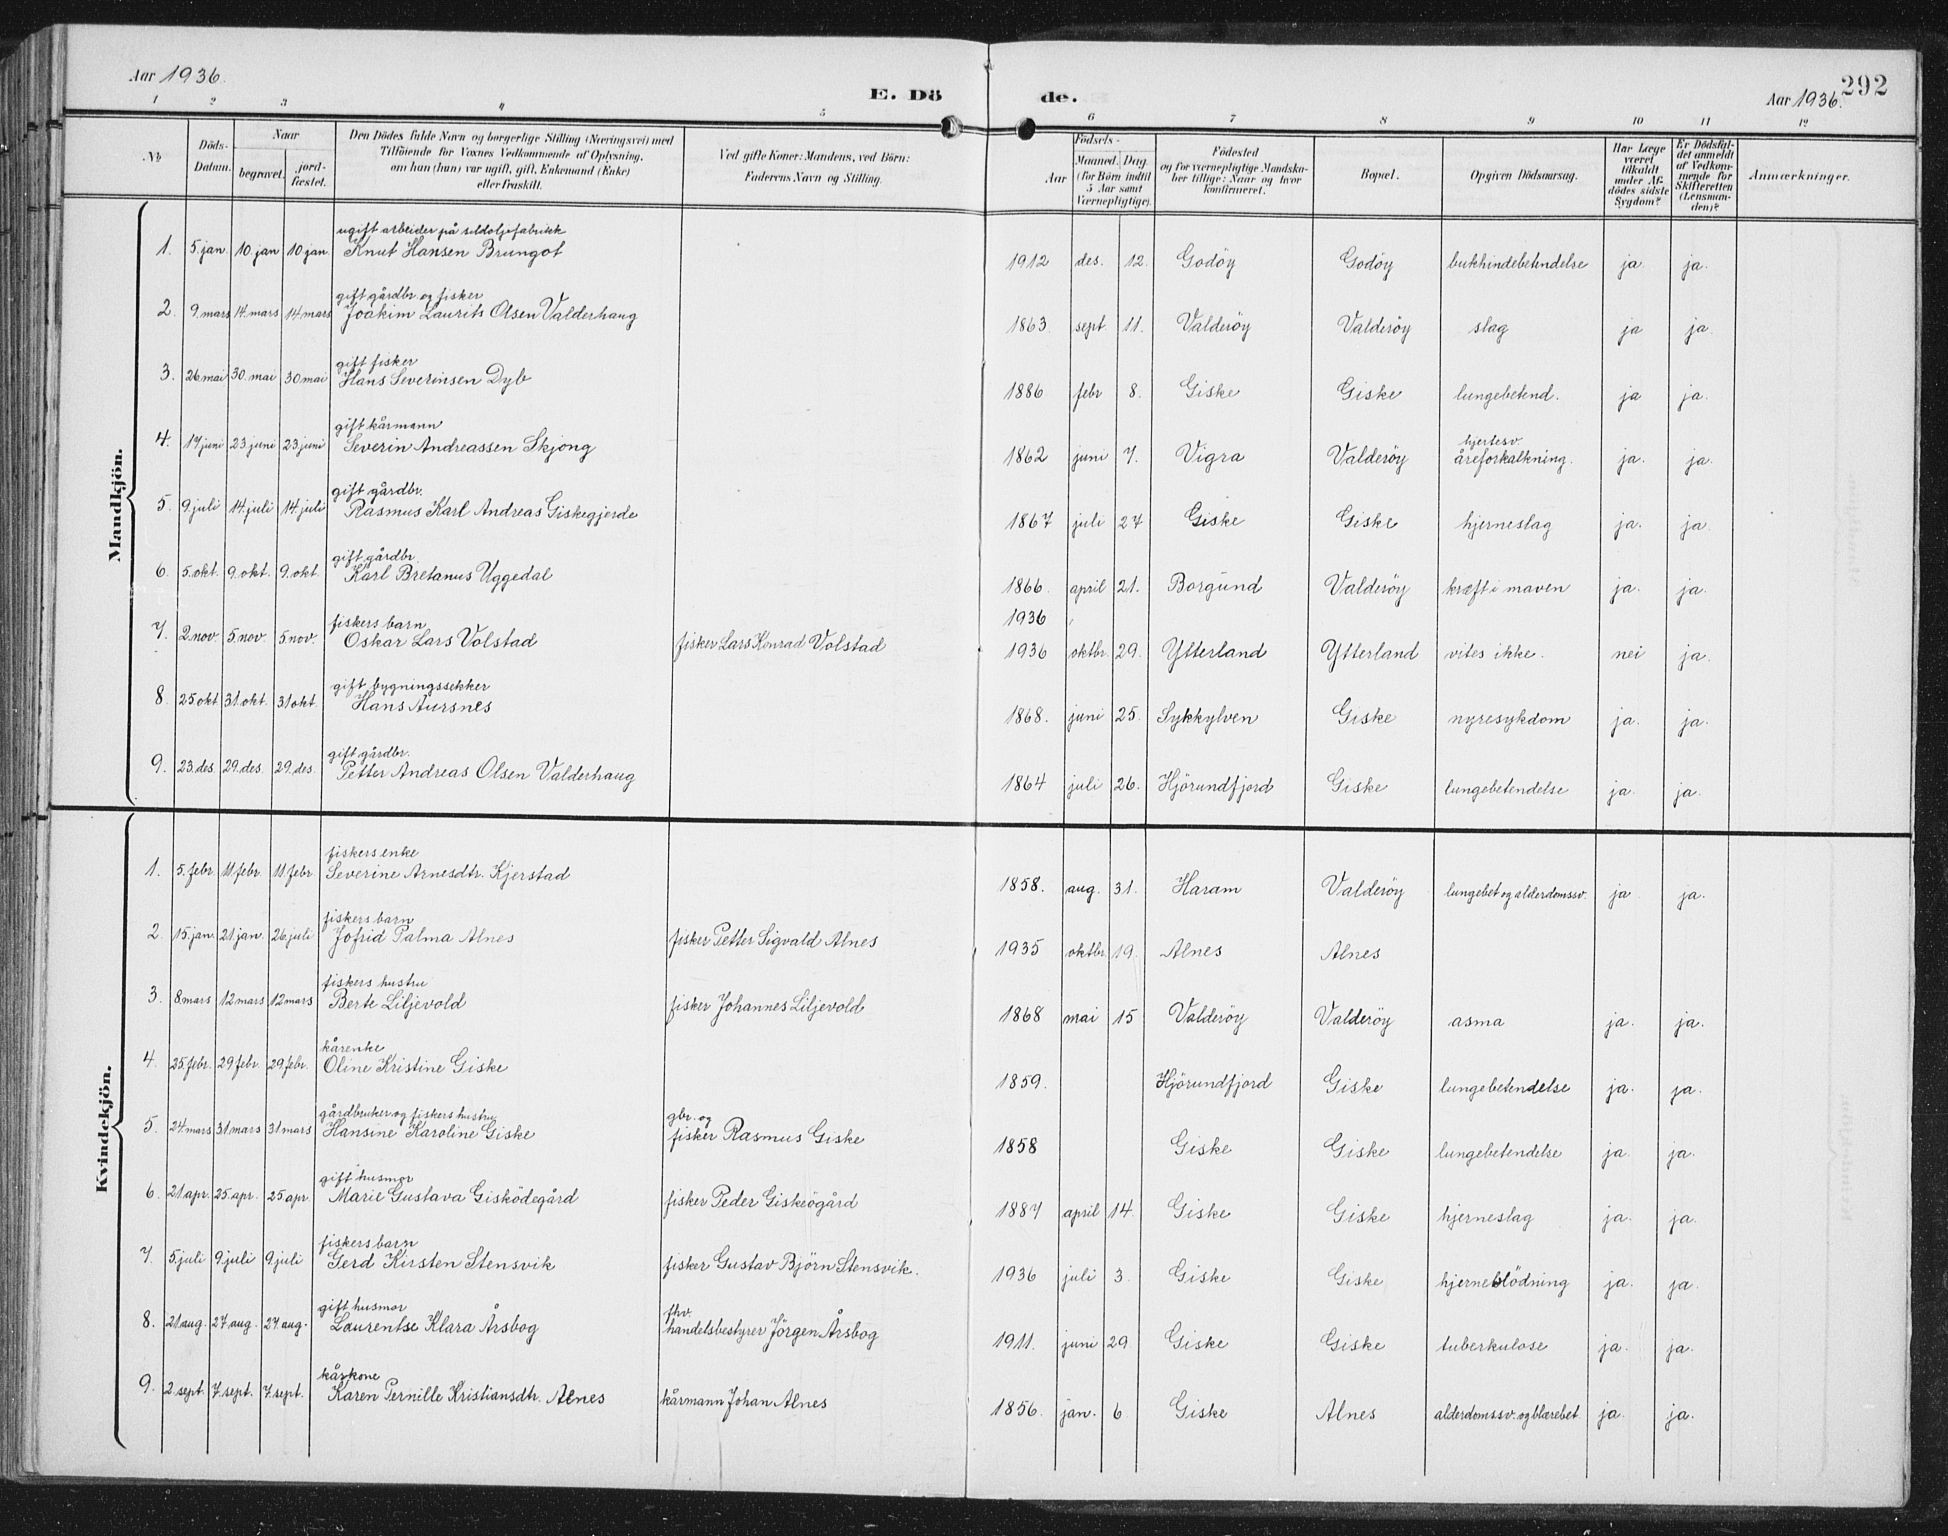 Aar 1936.
E. Dö
de.
292
Aar 1936.
1 2 3 4 5 6 7 8 9 10 11 12
No
Döds-Datum.
Naar
begravet.
jord-fæstet.
Den Dödes fulde Navn og borgerlige Stilling (Næringsvei) med
Tilföiende for Voxnes Vedkommende af Oplysning,
om han (hun) var ugift, gift, Enkemand (Enke)
eller fraskilt.
Ved gifte Koner: Mandens, ved Börn:
Faderens Navn og Stilling.
Födsels-
Aar
Maaned. Dag.
(for Börn indtil
5 Aar samt
Værnepligtige).
Födested
og for værnepligtige Mandska-
ber tillige: Naar og hvor
konfirmeret.
Bopæl.
Opgiven Dödsaarsag.
Har Læge
været
tilkaldt
under Af-
dödes sidste
Sygdom?
Er Dödsfal-
det anmeldt
af Vedkom-
mende for
Skifteretten
(Lensman-
den)?
Anmærkninger.
Mandkjön.
ugift arbeider på sildoljefabrikk
1. 5. jan 10. jan 10 jan. Knut Hansen Brungot 1912 des. 12. Godöy Godöy bukhindebetindelse ja. ja.
gift gårdbr. og fisker
2. 9. mars 14. mars 14 mars Joakim Laurits Olsen Valderhaug 1863. sept. 11. Valderöy Valderöy slag ja ja.
gift fisker
3. 26 mai 30. mai 30 mai Hans Severinsen Dyb 1886 febr 8. Giske Giske lungebetend. ja ja.
gift kårmann
4. 17 juni 23 juni 23 juni Severin Andreassen Skjong 1862 juni 7. Vigra Valderöy hjertesv. åreforkalkning. ja. ja.
gift gårdbr.
5. 9. juli 14. juli 14. juli Rasmus Karl Andreas Giskegjerde 1867 juli 27 Giske Giske hjerneslag ja. ja.
gift gårdbr.
6. 5. okt. 9. okt. 9. okt. Karl Bretanus Uggedal 1866. april 21. Borgund Valderöy kræft i maven ja. ja.
1936
fiskers barn
7. 2 nov 5. nov. 5 nov. Oskar Lars Volstad fisker Lars Konrad Volstad 1936 oktbr. 29. Ytterland Ytterland vites ikke. nei ja.
gift bygningssekker
8. 25 okt 31. okt. 31 okt. Hans Aursnes 1868. juni 25. Sykkylven Giske nyresykdom ja. ja.
gift gårdbr.
9. 23. des. 29. des. 29. des. Petter Andreas Olsen Valderhaug 1864 juli 26. Hjörundfjord Giske lungebetendelse ja. ja.
Kvindekjön.
fiskers enke
1. 5. febr. 11 febr. 11. febr. Severine Arnesdtr. Kjerstad 1858. aug. 31. Haram Valderöy lungebet og alderdomssv. ja ja.
fiskers barn
2. 15. jan 21 jan. 26. juli Jofrid Palma Alnes fisker Petter Sigvald Alnes 1935 oktbr. 19. Alnes Alnes
fiskers hustru
3. 8 mars 12 mars 12 mars Berte Liljevold fisker Johannes Liljevold 1868 mai 15 Valderöy Valderöy asma ja. ja.
kårenke
4. 25. febr. 29 febr. 29. febr. Oline Kristine Giske 1859. Hjörundfjord Giske lungebetendelse ja. ja.
gårdbruker og fiskers hustru
5. 24. mars 31 mars 31 mars Hansine Karoline Giske gbr. og fisker Rasmus Giske 1858 Giske Giske lungebetendelse ja. ja.
gift husmor
6. 21 apr. 25. apr. 25 apr Marie Gustava Gisködegård fisker Peder Giskeögård 1887 april 14. Giske Giske hjerneslag ja. ja.
fiskers barn
7. 5. juli 9. juli 9. juli Gerd Kirsten Stensvik fisker Gustav Björn Stensvik. 1936 juli 3. Giske Giske hjerneblödning ja. ja.
gift husmor
8. 21. aug. 27. aug. 27. aug. Laurentse Klara Årsbog fhv. handelsbestyrer Jörgen Årsbog 1911. juni 29 Giske Giske tuberkulose ja. ja.
kårkone
9. 2. sept. 7. sept. 7. sept. Karen Pernille Kristiansdtr. Alnes kårmann Johan Alnes 1856. jan. 6 Giske Alnes alderdomssv. og blærebet. ja. ja.